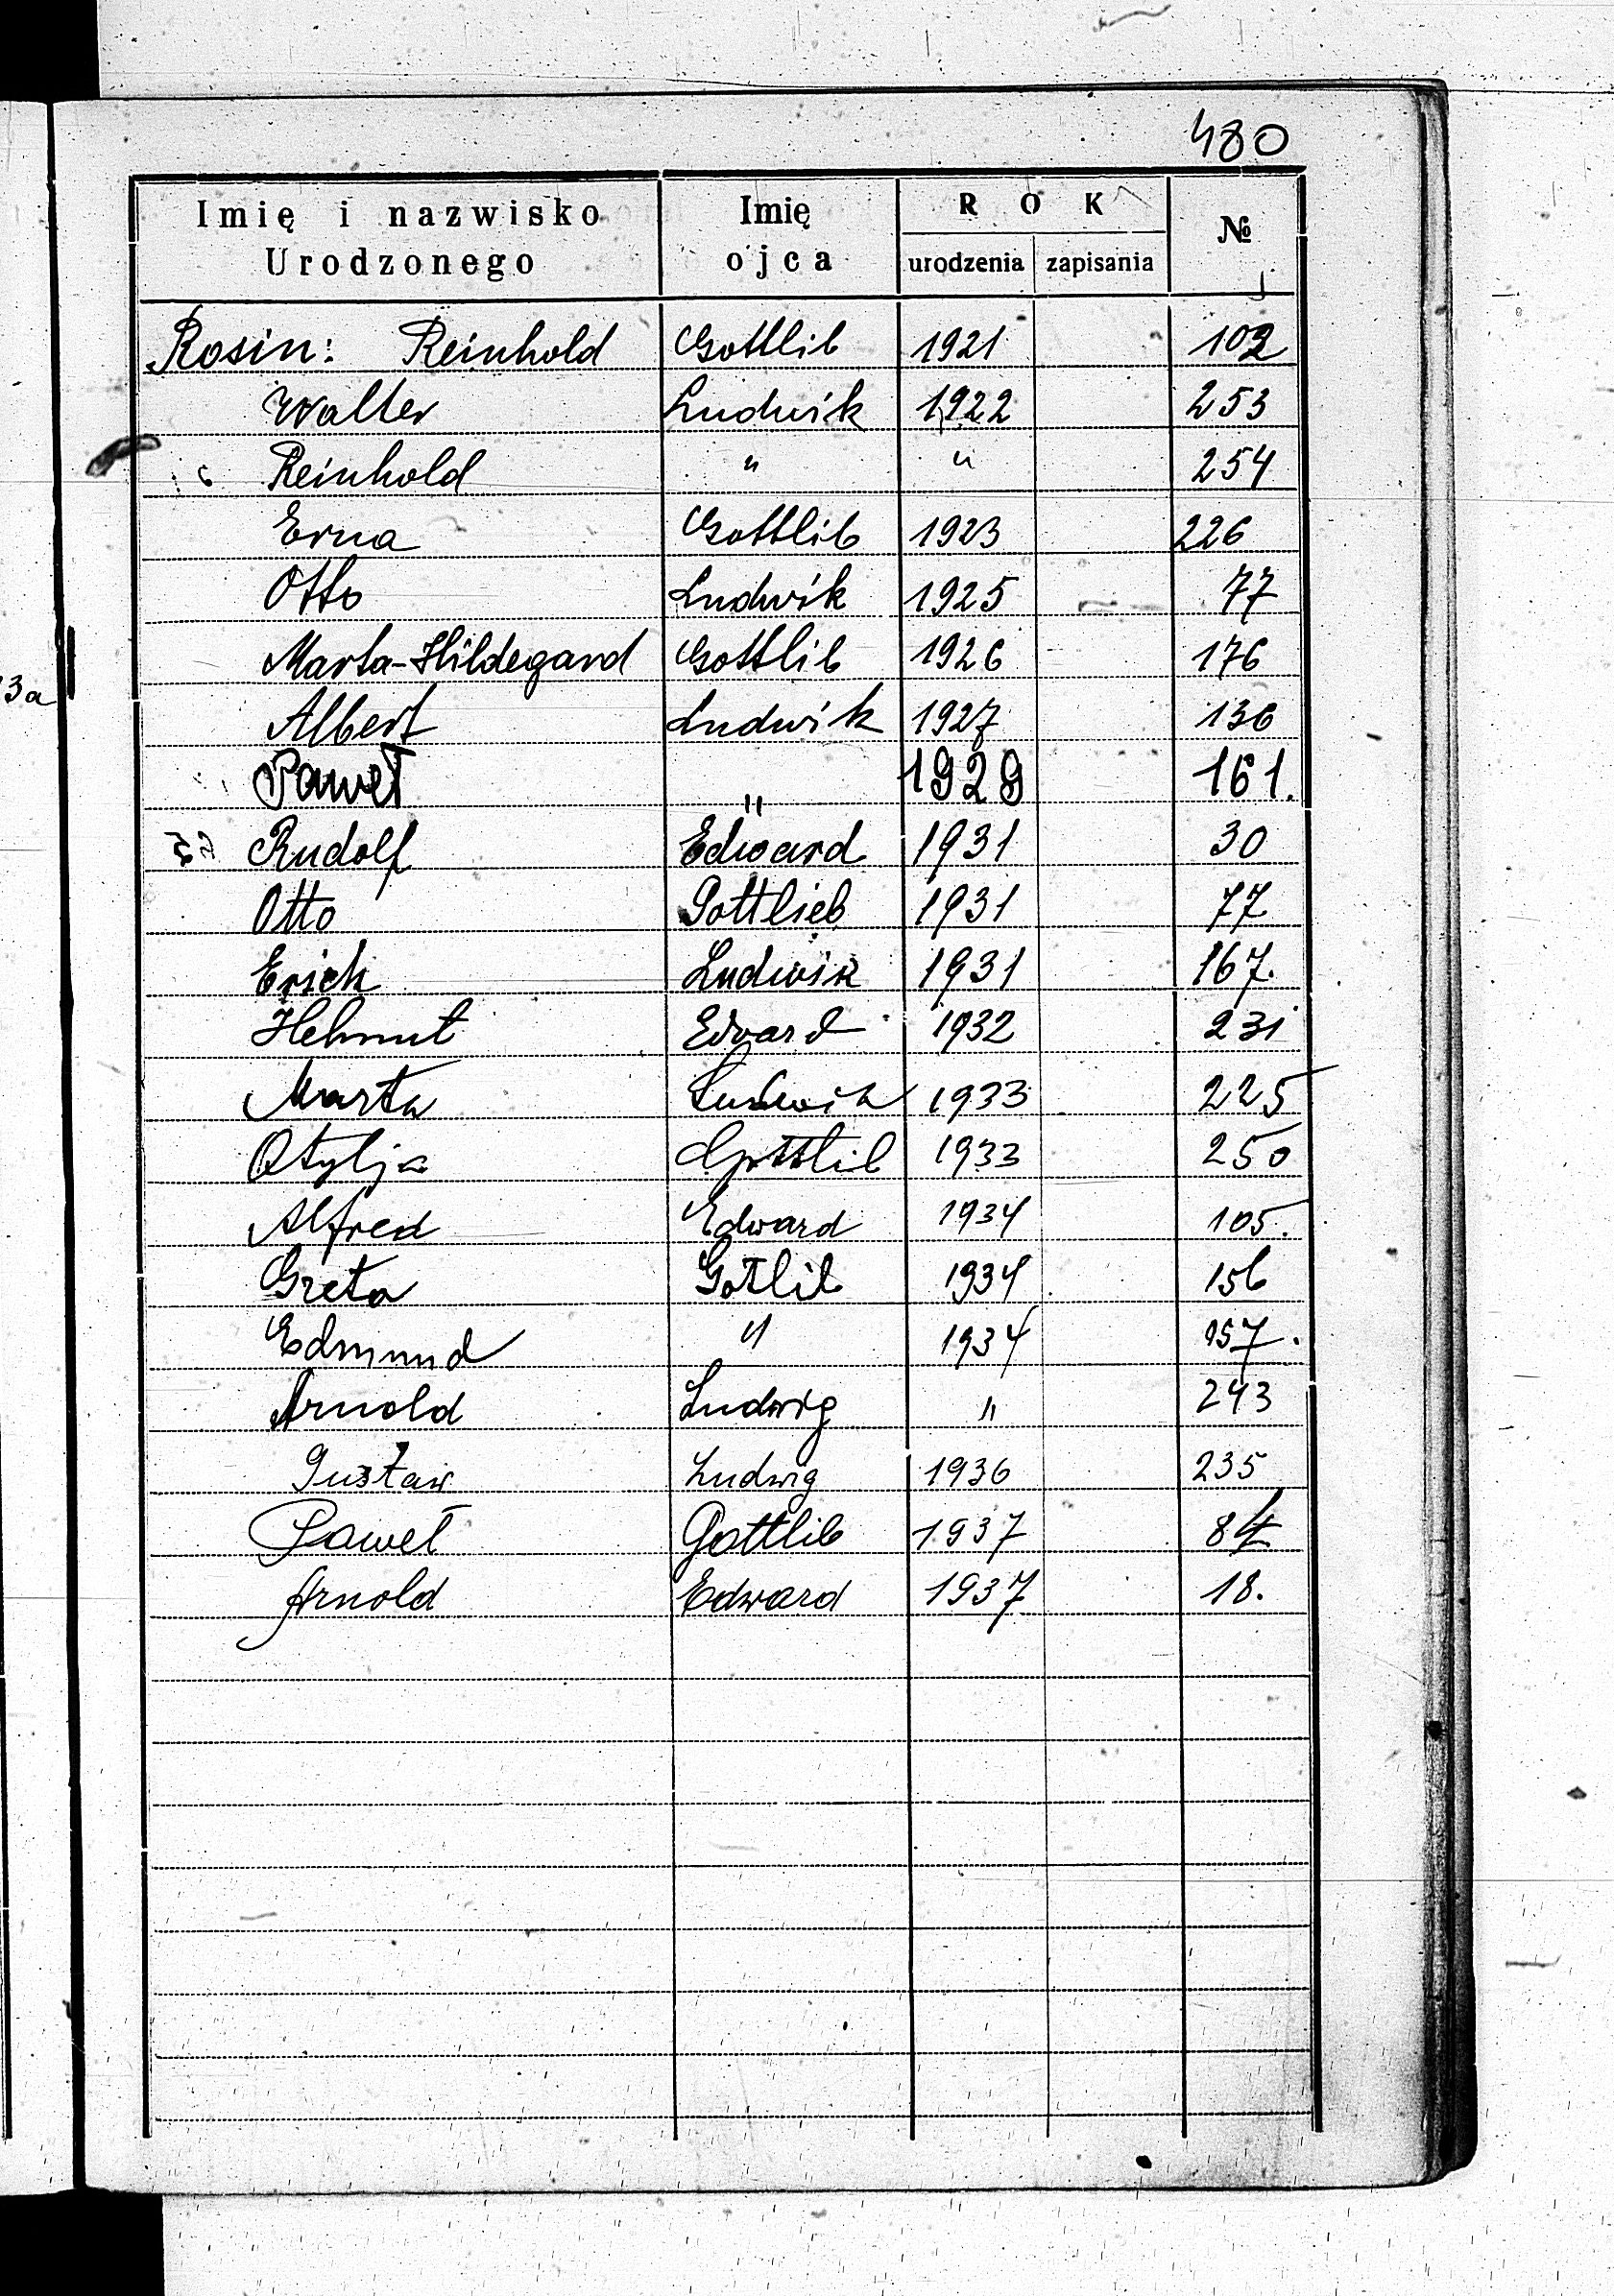 480
Imię i nazwisko Urodzonego | Imię ojca | ROK urodzenia | zapisania | №
Rosin: Reinhold Gottlib 1921 102
Walter Ludwik 1922 253
Reinhold " " 254
Erna Gottlib 1923 226
Otto Ludwik 1925 77
Marta-Hildegard Gottlib 1926 176
Albert Ludwik 1927 136
Paweł " 1929 161.
Rudolf Edward 1931 30
Otto Gottlieb 1931 77
Erich Ludwik 1931 167.
Helmut Edward 1932 231
Marta Ludwik 1933 225
Otylja Gottlib 1933 250
Alfred Edward 1934 105.
Greta Gotlib 1934 156
Edmund " 1934 157.
Arnold Ludwig " 243
Gustaw Ludwig 1936 235
Paweł Gottlib 1937 84
Arnold Edward 1937 18.
3a